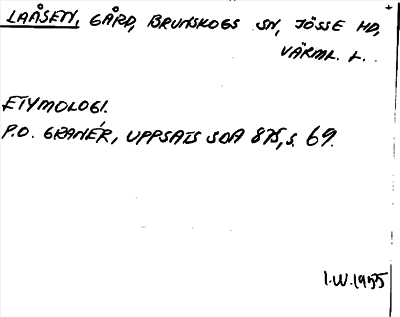 LAÅSEN, GÅRD, BRUNSKOGS SN, JÖSSE HD,
VÄRML. L.
ETYMOLOGI.
P.O. GRANÉR, UPPSATS SOA 875, S. 69.
I.W. 1955